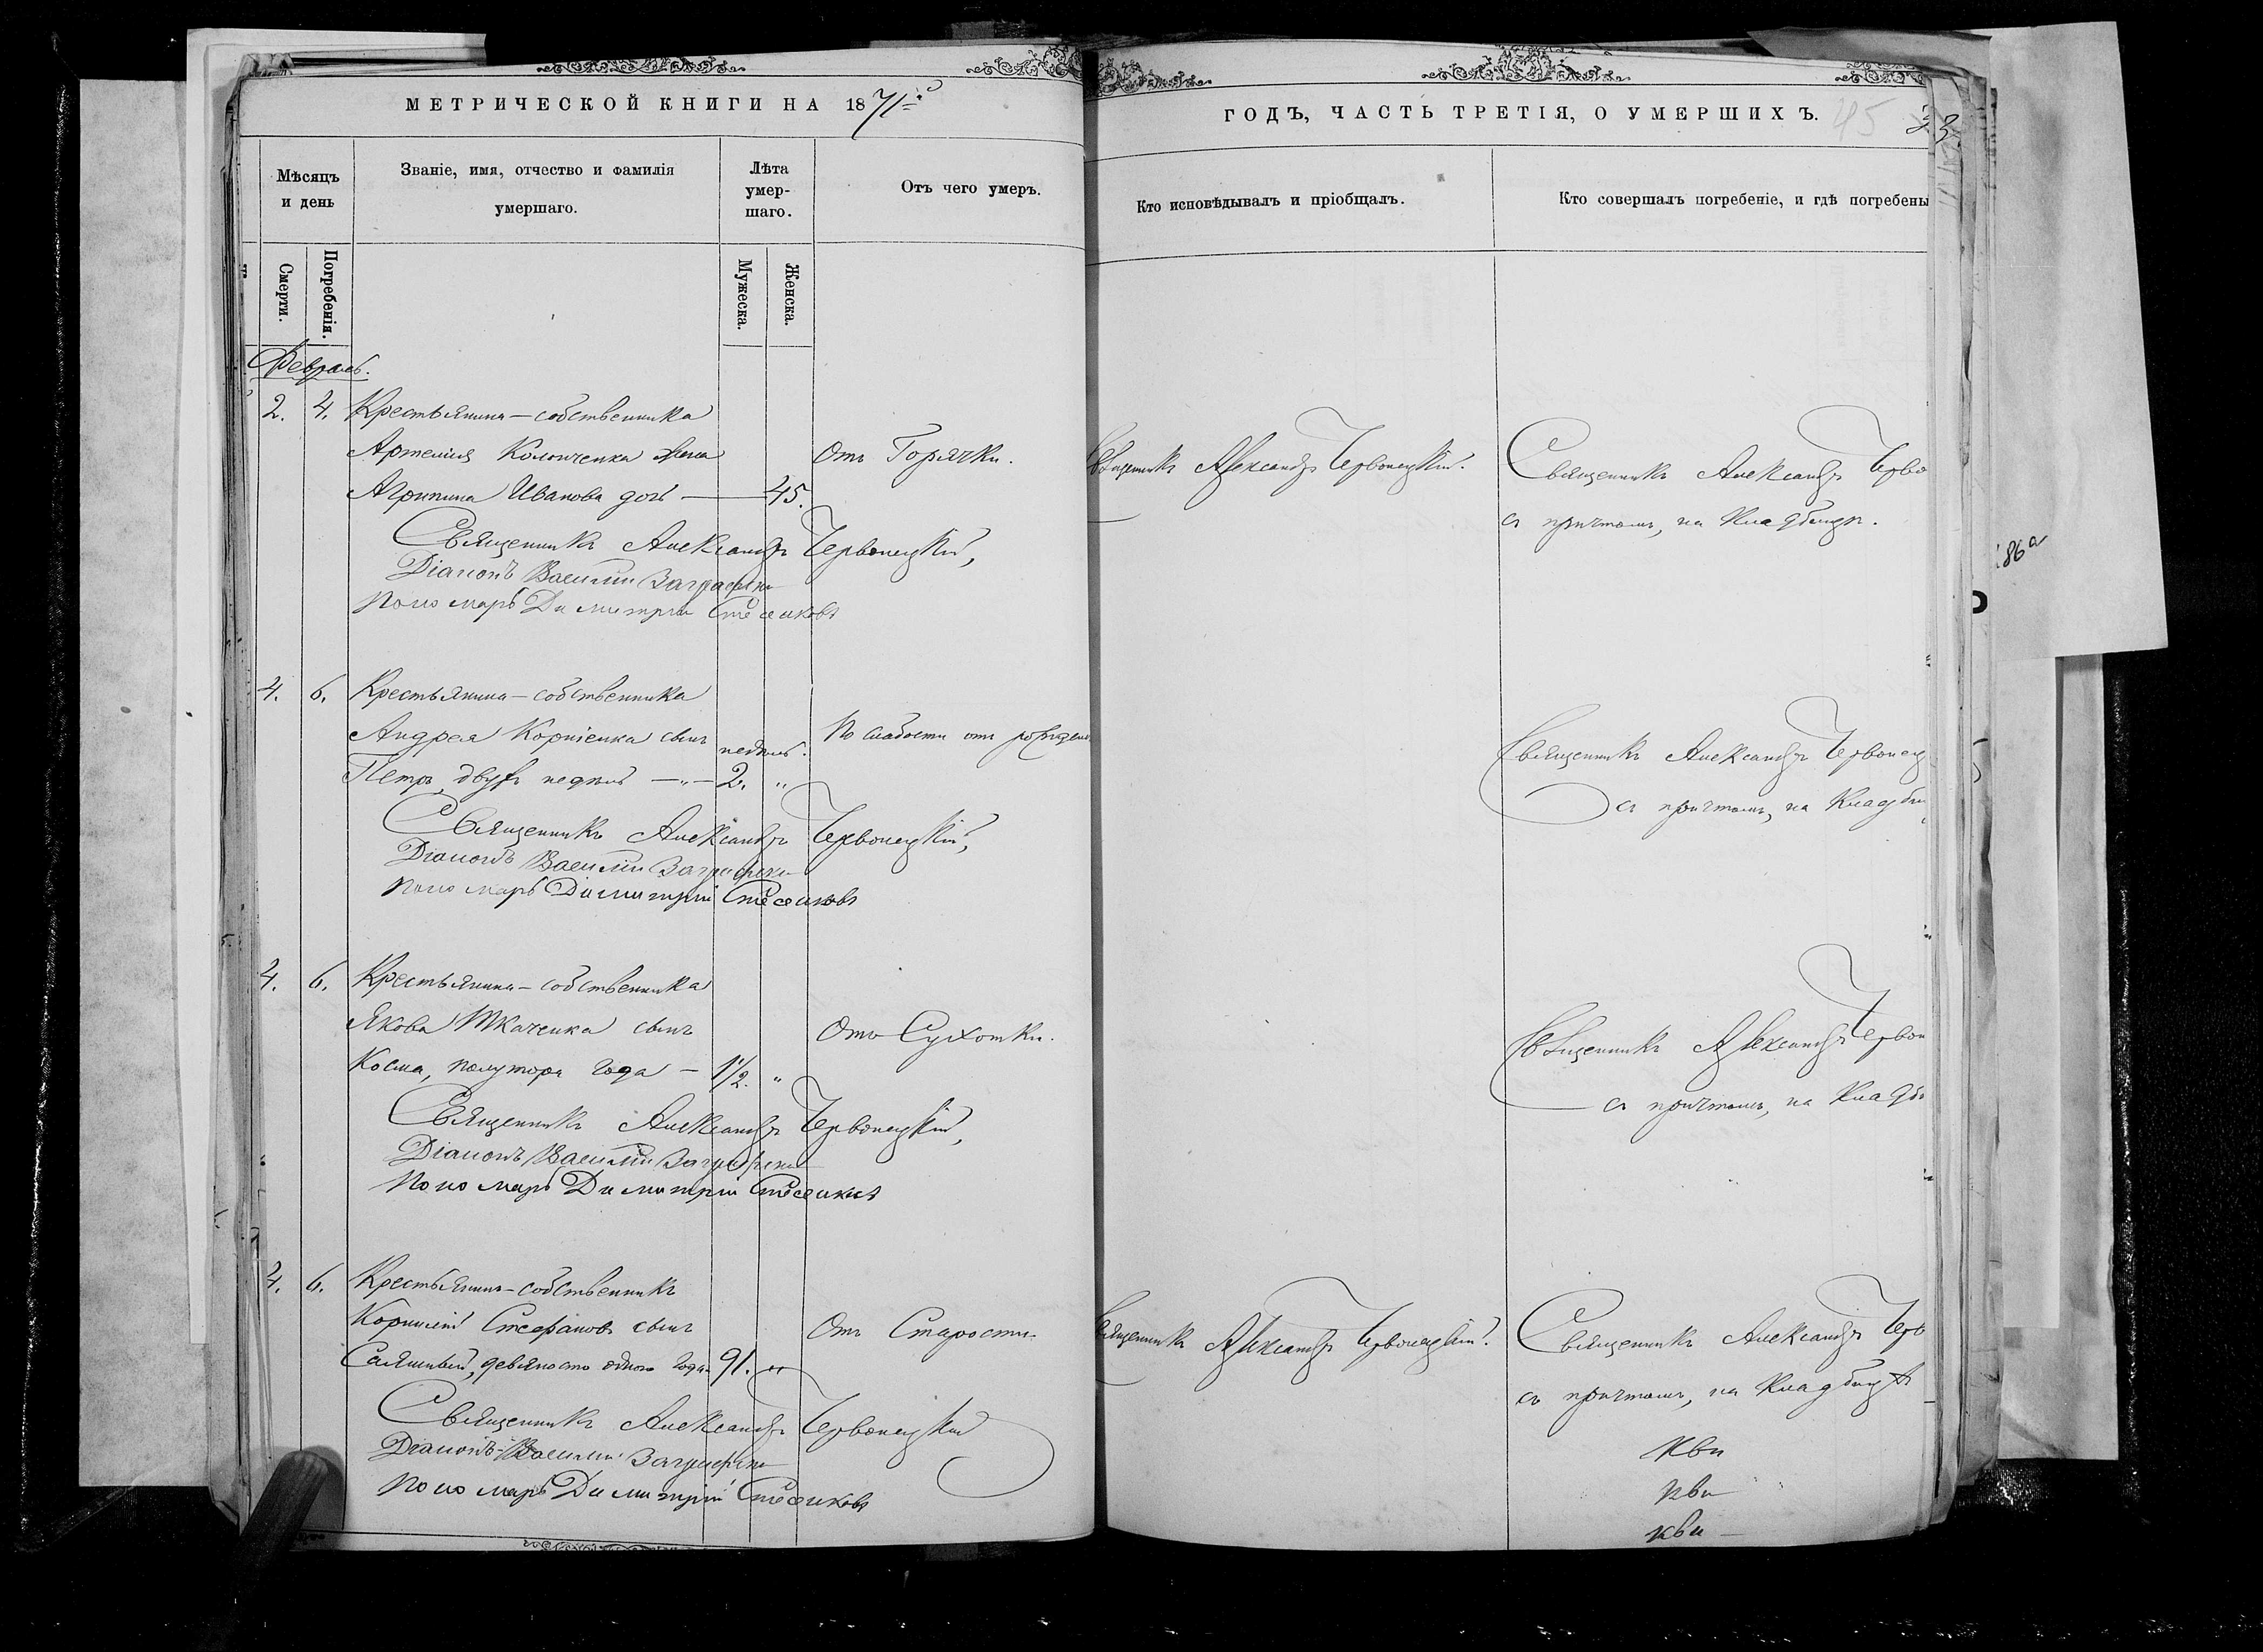 МЕТРИЧЕСКОЙ КНИГИ НА 1871й
Мѣсяцъ и день
Званіе, имя, отчество и фамилія умершаго.
Лѣта умер-шаго.
Отъ чего умеръ.
Смерти.
Погребенія.
Мужеска.
Женска.
Февраль.
2. 4. Крестьянина-собственника
Артемія жена
Отъ Горячки.
Агрипина Иванова дочь — 45.
Священникъ Александръ Червонецкій,
Діаконъ Василій
Пономарь Димитрій
4. 6. Крестьянина-собственника
Андрея Корніенка сынъ недѣль.
По слабости отъ рожденія
Петръ, двухъ недѣль —„— 2. „
Священникъ Александръ Червонецкій,
Діаконъ Василій
Пономарь Димитрій
4. 6. Крестьянина-собственника
Якова Ткаченка сынъ
Отъ Сухотки.
Косма, полутора года — 1½. „
Священникъ Александръ Червонецкій,
Діаконъ Василій
Пономарь Димитрій
4. 6. Крестьянинъ-собственникъ
Корнилій Стефановъ сынъ
Отъ Старости.
девяносто одного года 91. „
Священникъ Александръ Червонецкій
Діаконъ Василій
Пономарь Димитрій
ГОДЪ, ЧАСТЬ ТРЕТІЯ, О УМЕРШИХЪ.
45
Кто исповѣдывалъ и пріобщалъ.
Кто совершалъ погребеніе, и гдѣ погребены
Священникъ Александръ Червонецкій.
Священникъ Александръ Черво
съ причтомъ, на Кладбищѣ.
Священникъ Александръ Червонец
съ причтомъ, на Кладби
Священникъ Александръ Червон
съ причтомъ, на Кладб
Священникъ Александръ Червонецкій.
Священникъ Александръ Черв
съ причтомъ, на Кладбищѣ
86а